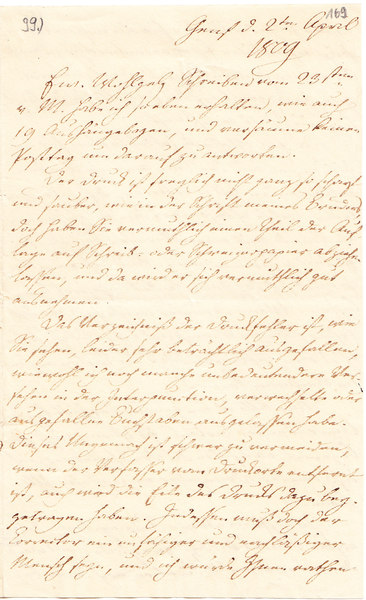 99.)
169
Genf d. 2ten April
1809
Ew. Wohlgeb. Schreiben vom 23sten
v. M. habe ich so eben erhalten, wie auch
19 Aushängebogen, und versäume keinen
Posttag um darauf zu antworten.
Der Druck ist freylich nicht ganz so scharf
und sauber, wie in der Schrift meines Bruders,
doch haben Sie vermuthlich einen Theil der Auf-
lage auf Schreib- oder Schweizerpapier abziehn
lassen, und da wird er sich vermuthlich gut
ausnehmen.
Das Verzeichniß der Druckfehler ist, wie
Sie sehen, leider sehr beträchtlich ausgefallen,
wiewohl ich noch manche unbedeutendere Ver-
sehen in der Interpunction, verwechselte oder
ausgefallene Buchstaben ausgelassen habe.
Dieses Ungemach ist schwer zu vermeiden,
wenn der Verfasser vom Druckorte entfernt
ist, auch wird die Eile des Drucks dazu bey-
getragen haben. Indessen muß doch der
Corrector ein unfähiger und nachläßiger
Mensch seyn, und ich würde Ihnen rathen